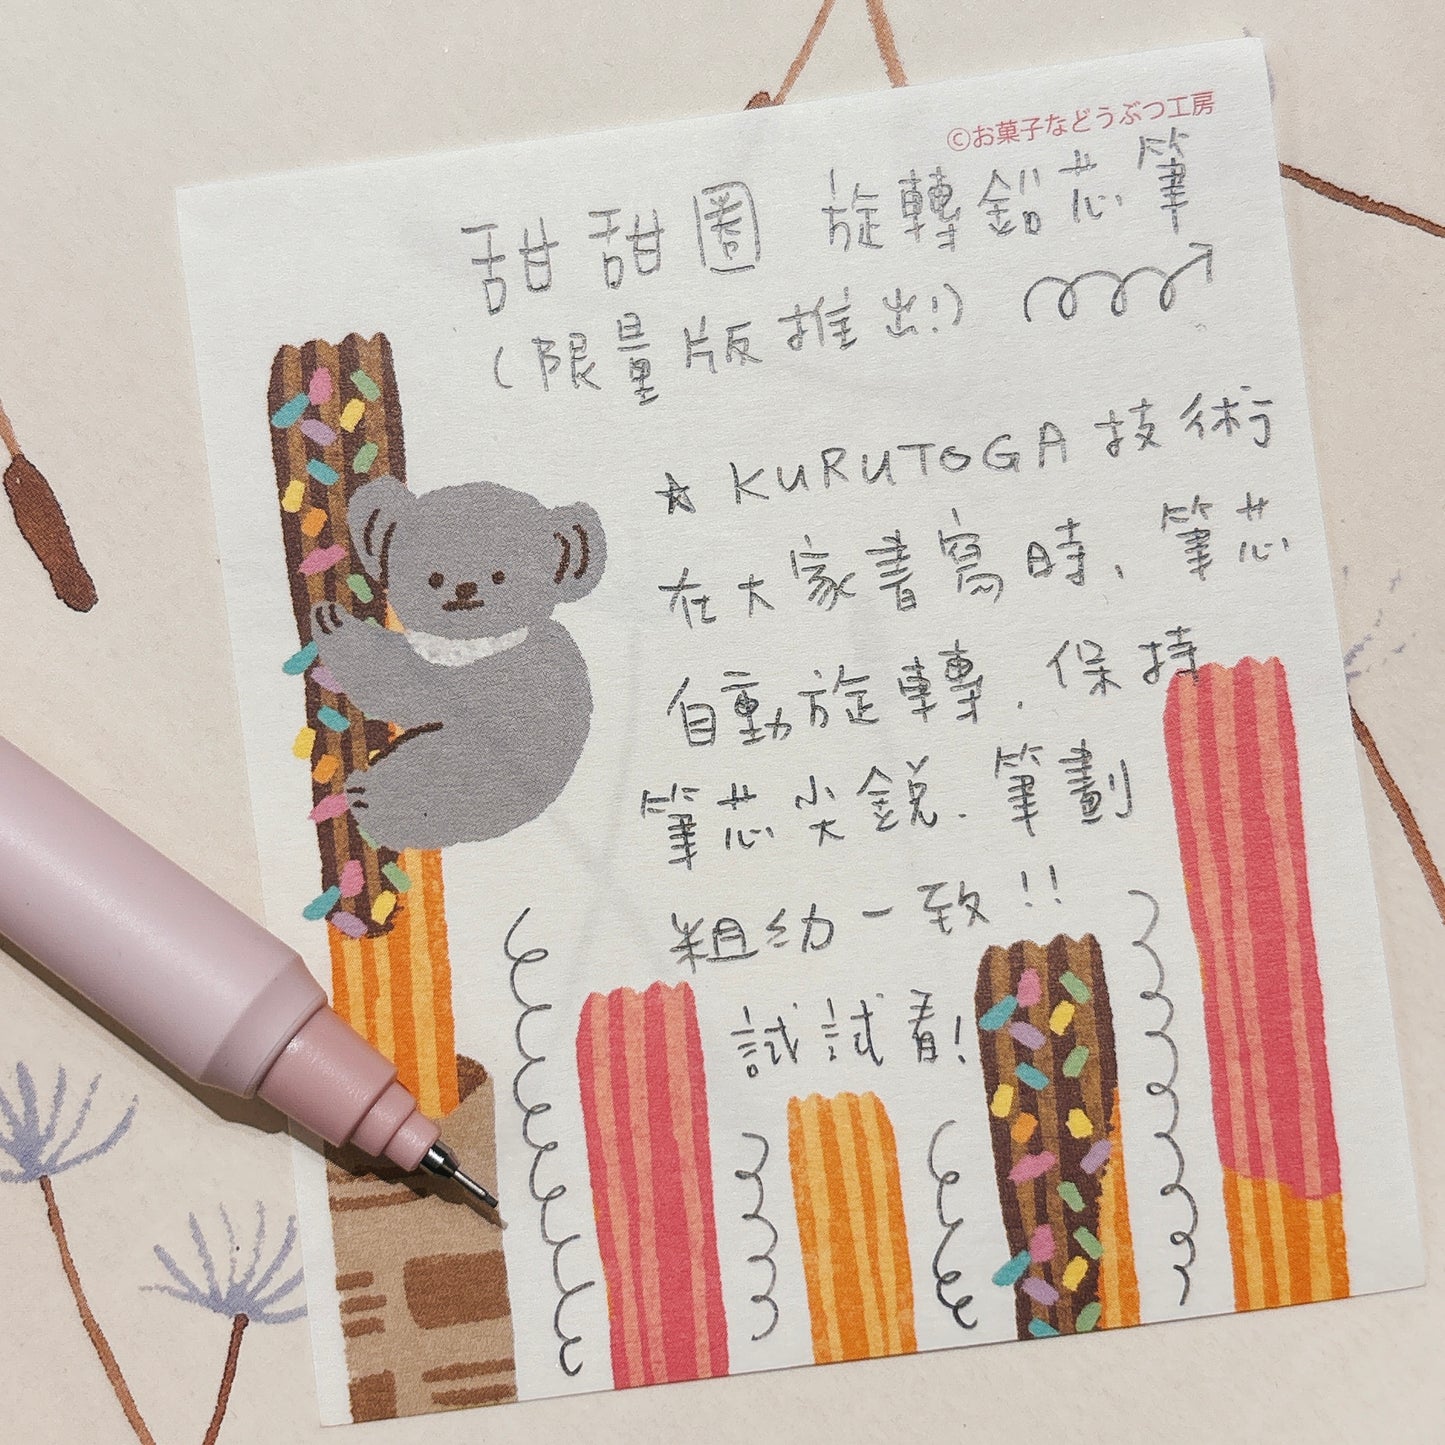 ©お菓子などうぶつ工房
甜甜圈 旋轉鉛芯筆
(限量版推出!)
☆ KURUTOGA 技術
在大家書寫時、筆芯
自動旋轉、保持
筆芯尖銳、筆劃
粗幼一致!!
試試看!